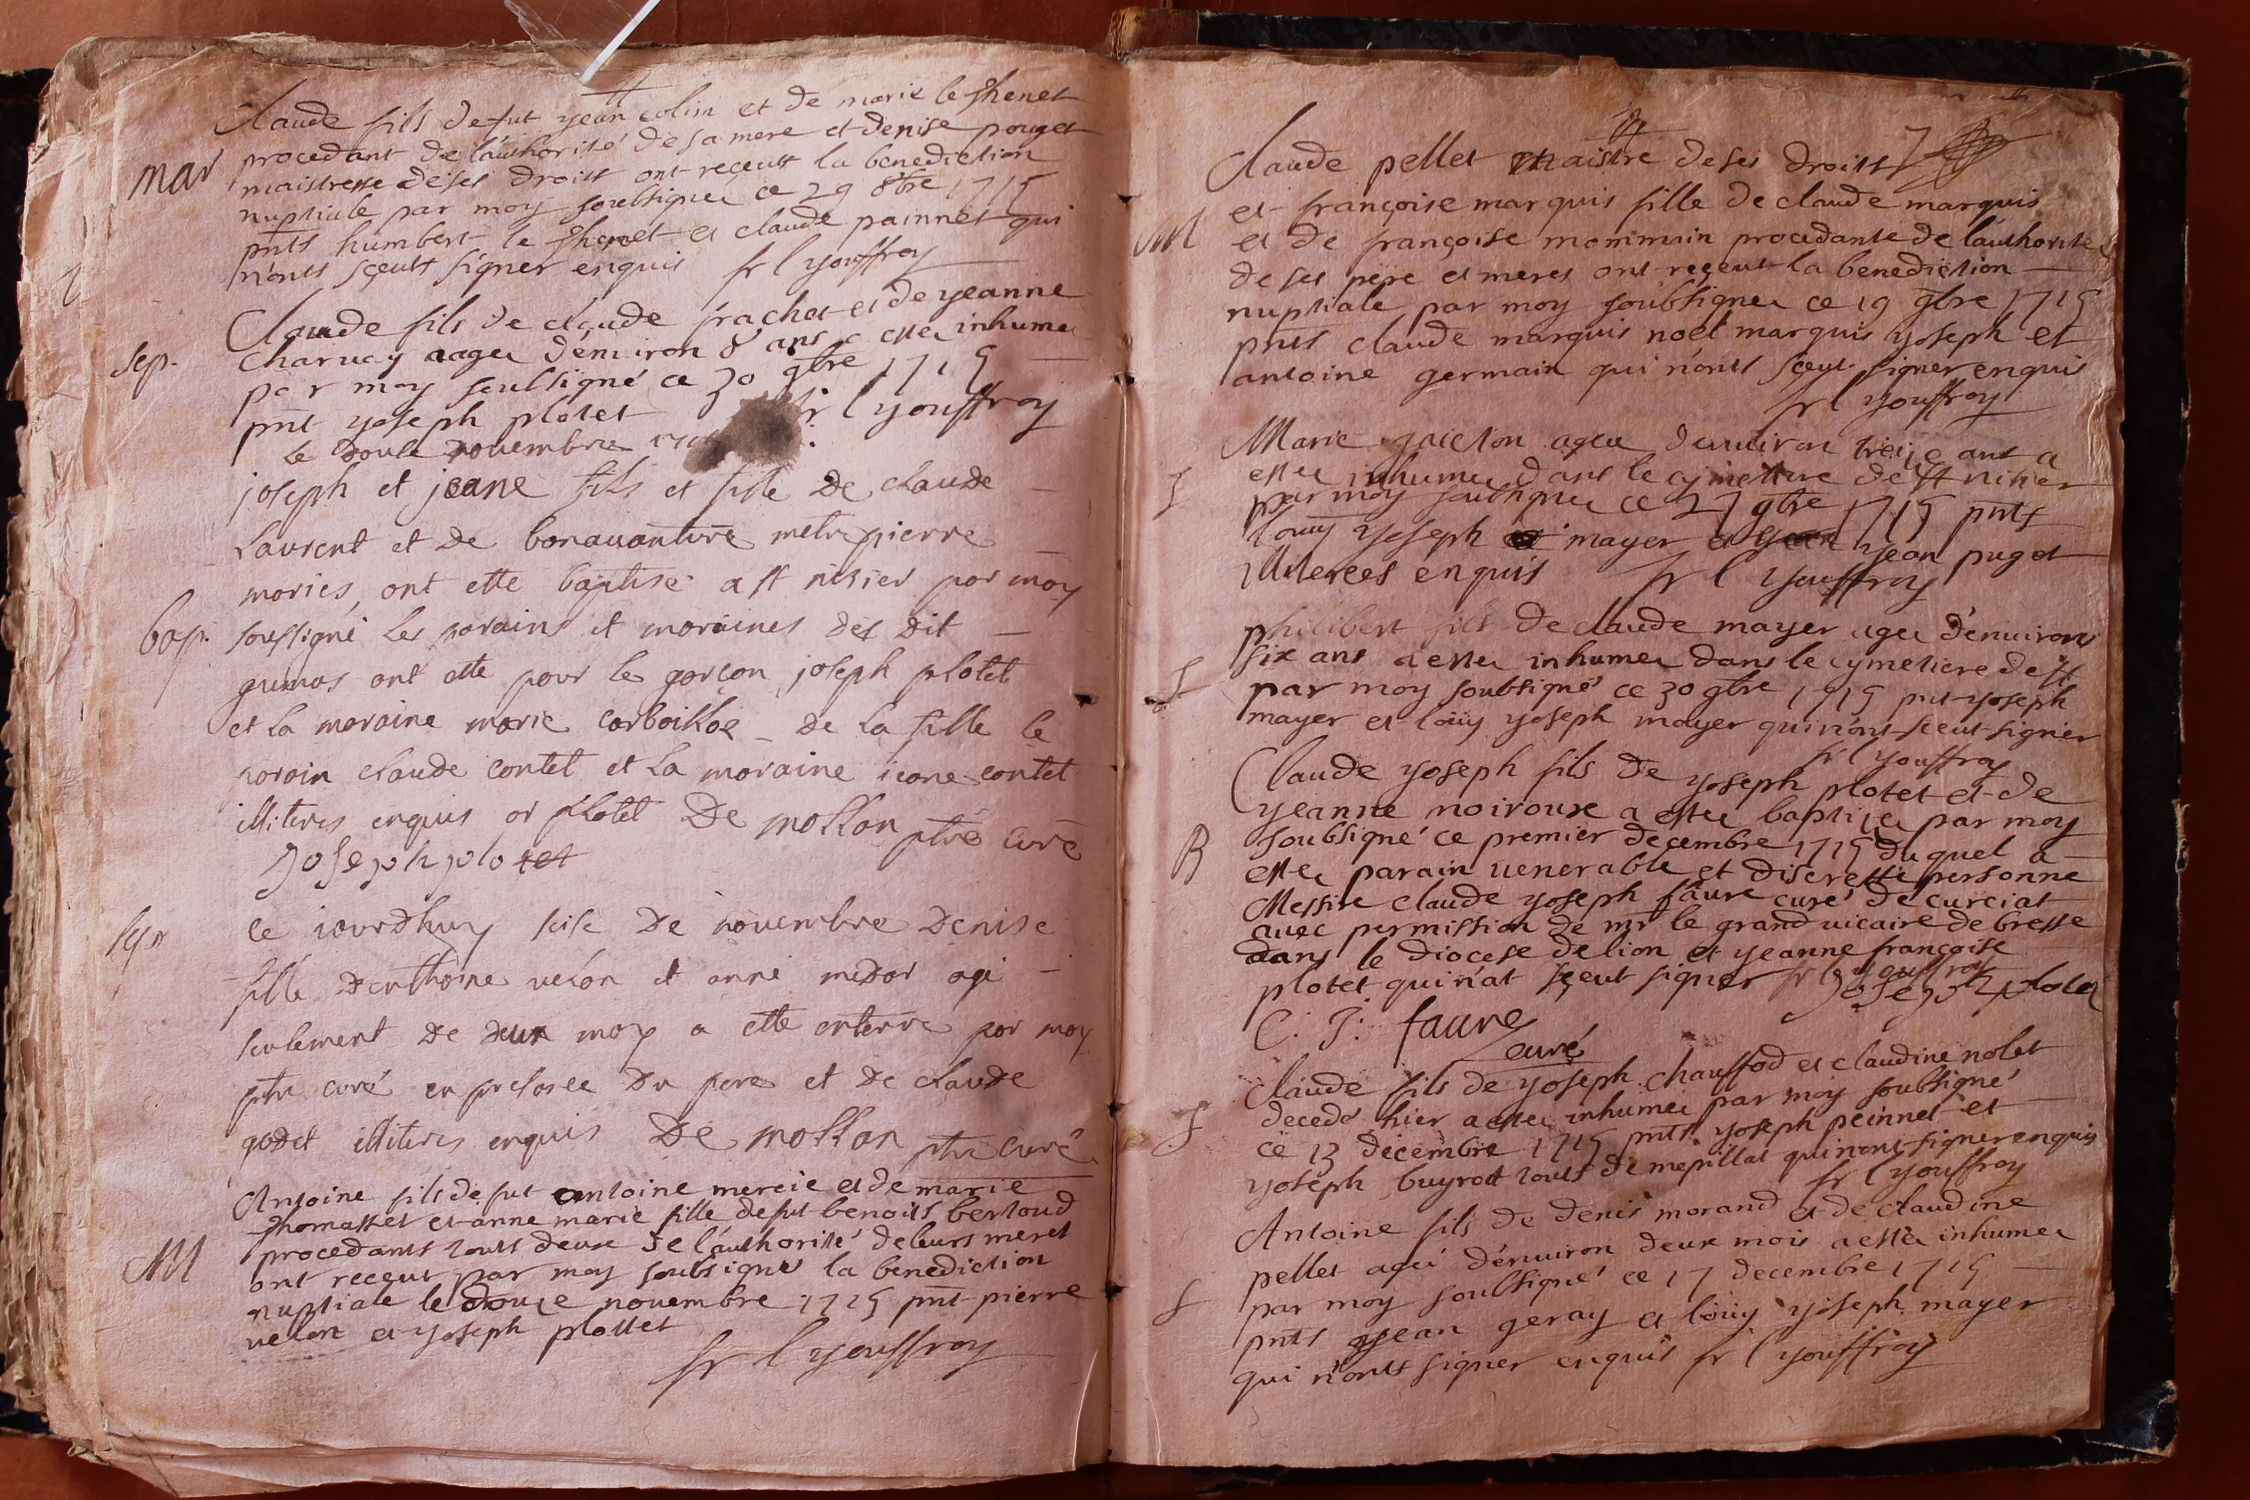 Claude fils de fut yean colin et de marie le ghenet
mar
procedant de l'authorité de sa mere et denise pouget
maistresse de ses droits ont reçeutt la benediction
nuptiale par moy soubsignez ce 29 8bre 1715
pnts humbert le ghenet et claude painnet qui
n'onts sçeutt signer enquis fr l youffroy
Claude fils de claude frachet et de yeanne
sep.
Charvay aagez d'environ 8 ans a estez inhumez
par moy soubsigné ce 30 9bre 1715
pnt yoseph plotet fr l youffroy
le douse novembre
joseph et jeane fils et fille de claude
Laurent et de bonavanture metrepierre
mories, ont ette baptise a st nisier por moy
bap.
soussigné les parains et moraines des dit
gumos ont ette pour le gorcon joseph plotet
et la moraine morie corboilloz de la fille le
poroin claude contet et la moraine ieane contet
illiteres enquis or plotet De mollon ptre curé
Joseph plotet
sep
Ce iourdhuy seise de novembre denise
fille danthoine velon et anne medor agé
seulement de deux moy a ette enterre por moy
ptre curé en presence du pere et de claude
godet illiteres enquis De mollon ptre curé
Antoine fils de fut antoine mercie et de marie
thomasset et anne marie fille de fut benoits bertoud
M
procedants touts deux de l'authorité de leurs meres
ont reçeut par moy soubsigné la benediction
nuptiale le douze novembre 1715 pnt pierre
velon et yoseph plottet
fr l youffroy
Claude pellet maistre de ses droits
et françoise marquis fille de claude marquis
M
et de françoise mommain procedante de l'authorite
de ses pere et meres ont reçeut la benediction
nuptiale par moy soubsignez ce 19 9bre 1715
pnts claude marquis noel marquis yoseph et
antoine germain qui n'onts sçeut signer enquis
fr l youffroy
Marie agez d'environ treize ans a
estez inhumez dans le cymettiere de st nisier
S
par moy soubsignez ce 27 9bre 1715 pnts
louy yoseph mayer et yean puget
illiterees enquis fr l youffroy
philibert fils de claude mayer agez d'environ
six ans a estez inhumez dans le cymetiere de st
S
par moy soubsigné ce 30 9bre 1715 pnt yoseph
mayer et loüy yoseph mayer qui n'ont sceut signer
fr l youffroy
Claude yoseph fils de yoseph plotet et de
yeanne noiroux a estez baptizez par moy
soubsigné ce premier decembre 1715 duquel a
B
estez parain venerable et discrette personne
Messire claude yoseph faure curé de curciat
avec permission de mr le grand vicaire de bresse
dans le diocese de lion et yeanne françoise
plotet qui n'at sçeut signer fr l youffroy Joseph plotet
C. J. faure
curé
Claude fils de yoseph chauffod et claudine nolet
decedé hier a estez inhumez par moy soubsigné
S
ce 13 decembre 1715 pnts yoseph peinnet et
yoseph buyrod touts de mepillat qui n'ont signer enquis
fr l youffroy
Antoine fils de denis morand et de claudine
pellet agé d'environ deux mois a estez inhumez
S
par moy soubsigné ce 17 decembre 1715
pnts yean geray et loüy yoseph mayer
qui n'onts signer enquis fr l youffroy